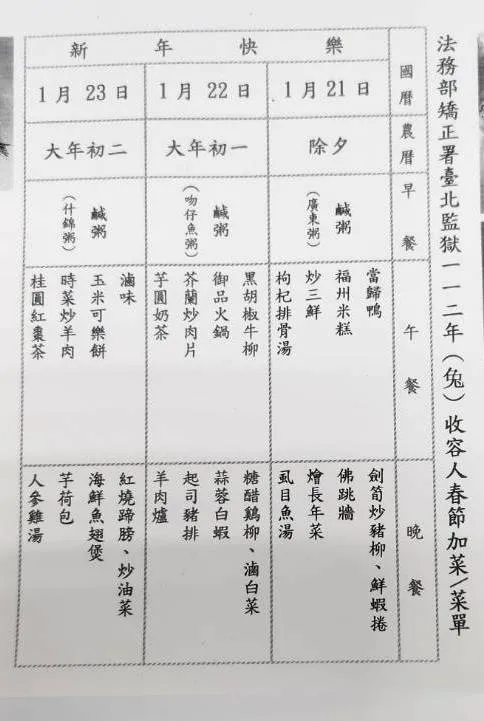 法務部矯正署臺北監獄一一二年(兔)收容人春節加菜/菜單
新年快樂
國曆
1月21日
1月22日
1月23日
農曆
除夕
大年初一
大年初二
早餐
鹹粥
(廣東粥)
鹹粥
(吻仔魚粥)
鹹粥
(什錦粥)
午餐
當歸鴨
福州米糕
炒三鮮
枸杞排骨湯
黑胡椒牛柳
御品火鍋
芥蘭炒肉片
芋圓奶茶
滷味
玉米可樂餅
時菜炒羊肉
桂圓紅棗茶
晚餐
劍筍炒豬柳、鮮蝦捲
佛跳牆
燴長年菜
虱目魚湯
糖醋鷄柳、滷白菜
蒜蓉白蝦
起司豬排
羊肉爐
紅燒蹄膀、炒油菜
海鮮魚翅煲
芋荷包
人參雞湯